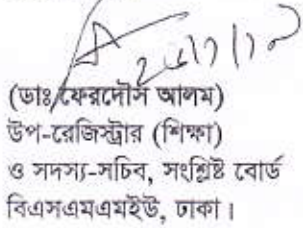 (ডাঃ ফেরদৌস আলম)
উপ-রেজিস্ট্রার (শিক্ষা)
ও সদস্য-সচিব, সংশ্লিষ্ট বোর্ড
বিএসএমএমইউ, ঢাকা।